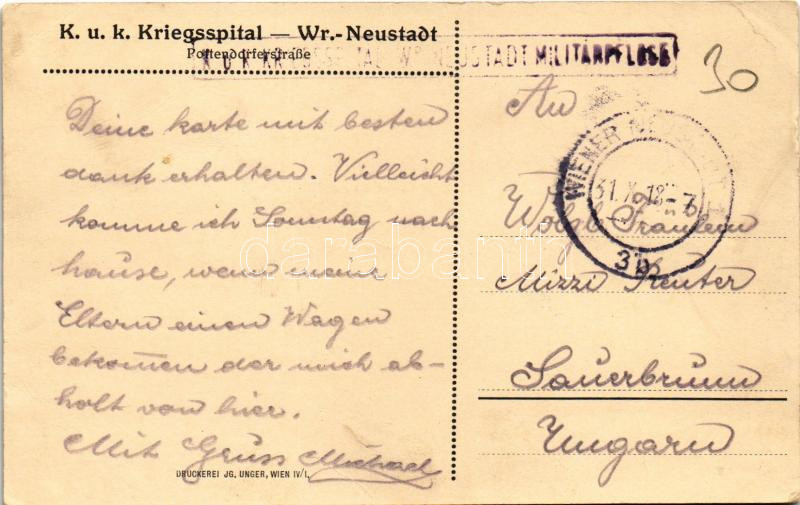 K. u. k. Kriegsspital — Wr.-Neustadt
Pottendorferstraße
K.U.K. KRIEGSSPITAL WR. NEUSTADT MILITÄRPFLEGE
30
Deine karte mit besten
dank erhalten. Vielleicht
komme ich Sonntag nach
hause, wenn meine
Eltern einen Wagen
bekommen der mich ab-
holt von hier.
Mit Gruss Michael
DRUCKEREI JG. UNGER, WIEN IV/1.
An
Wolgb. Fräulein
Mizzi Reuter
Sauerbrunn
Ungarn
WIENER NEUSTADT 1
31.X.18
3b
darabanth